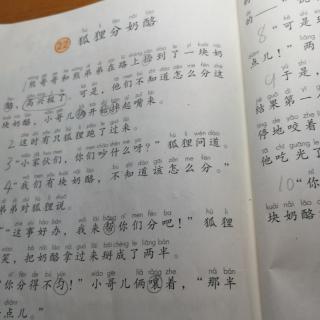 22 狐狸分奶酪
1 熊哥哥和熊弟弟在路上捡到了一块奶
酪,高兴极了。可是,他们不知道怎么分这
块奶酪,小哥儿俩开始拌起嘴来。
2 这时有只狐狸跑了过来。
3 “小家伙们,你们吵什么呀?”狐狸问道。
4 “我们有块奶酪,不知道该怎么分。”
弟弟对狐狸说。
“这事好办,我来帮你们分吧!”狐狸
笑,把奶酪拿过来掰成了两半。
“你分得不匀!”小哥儿俩嚷着,“那半
点儿。”
8 “可是
点儿!”两
9 于是,
结果第一个
停地咬着
他吃光了
10 “你
块奶酪